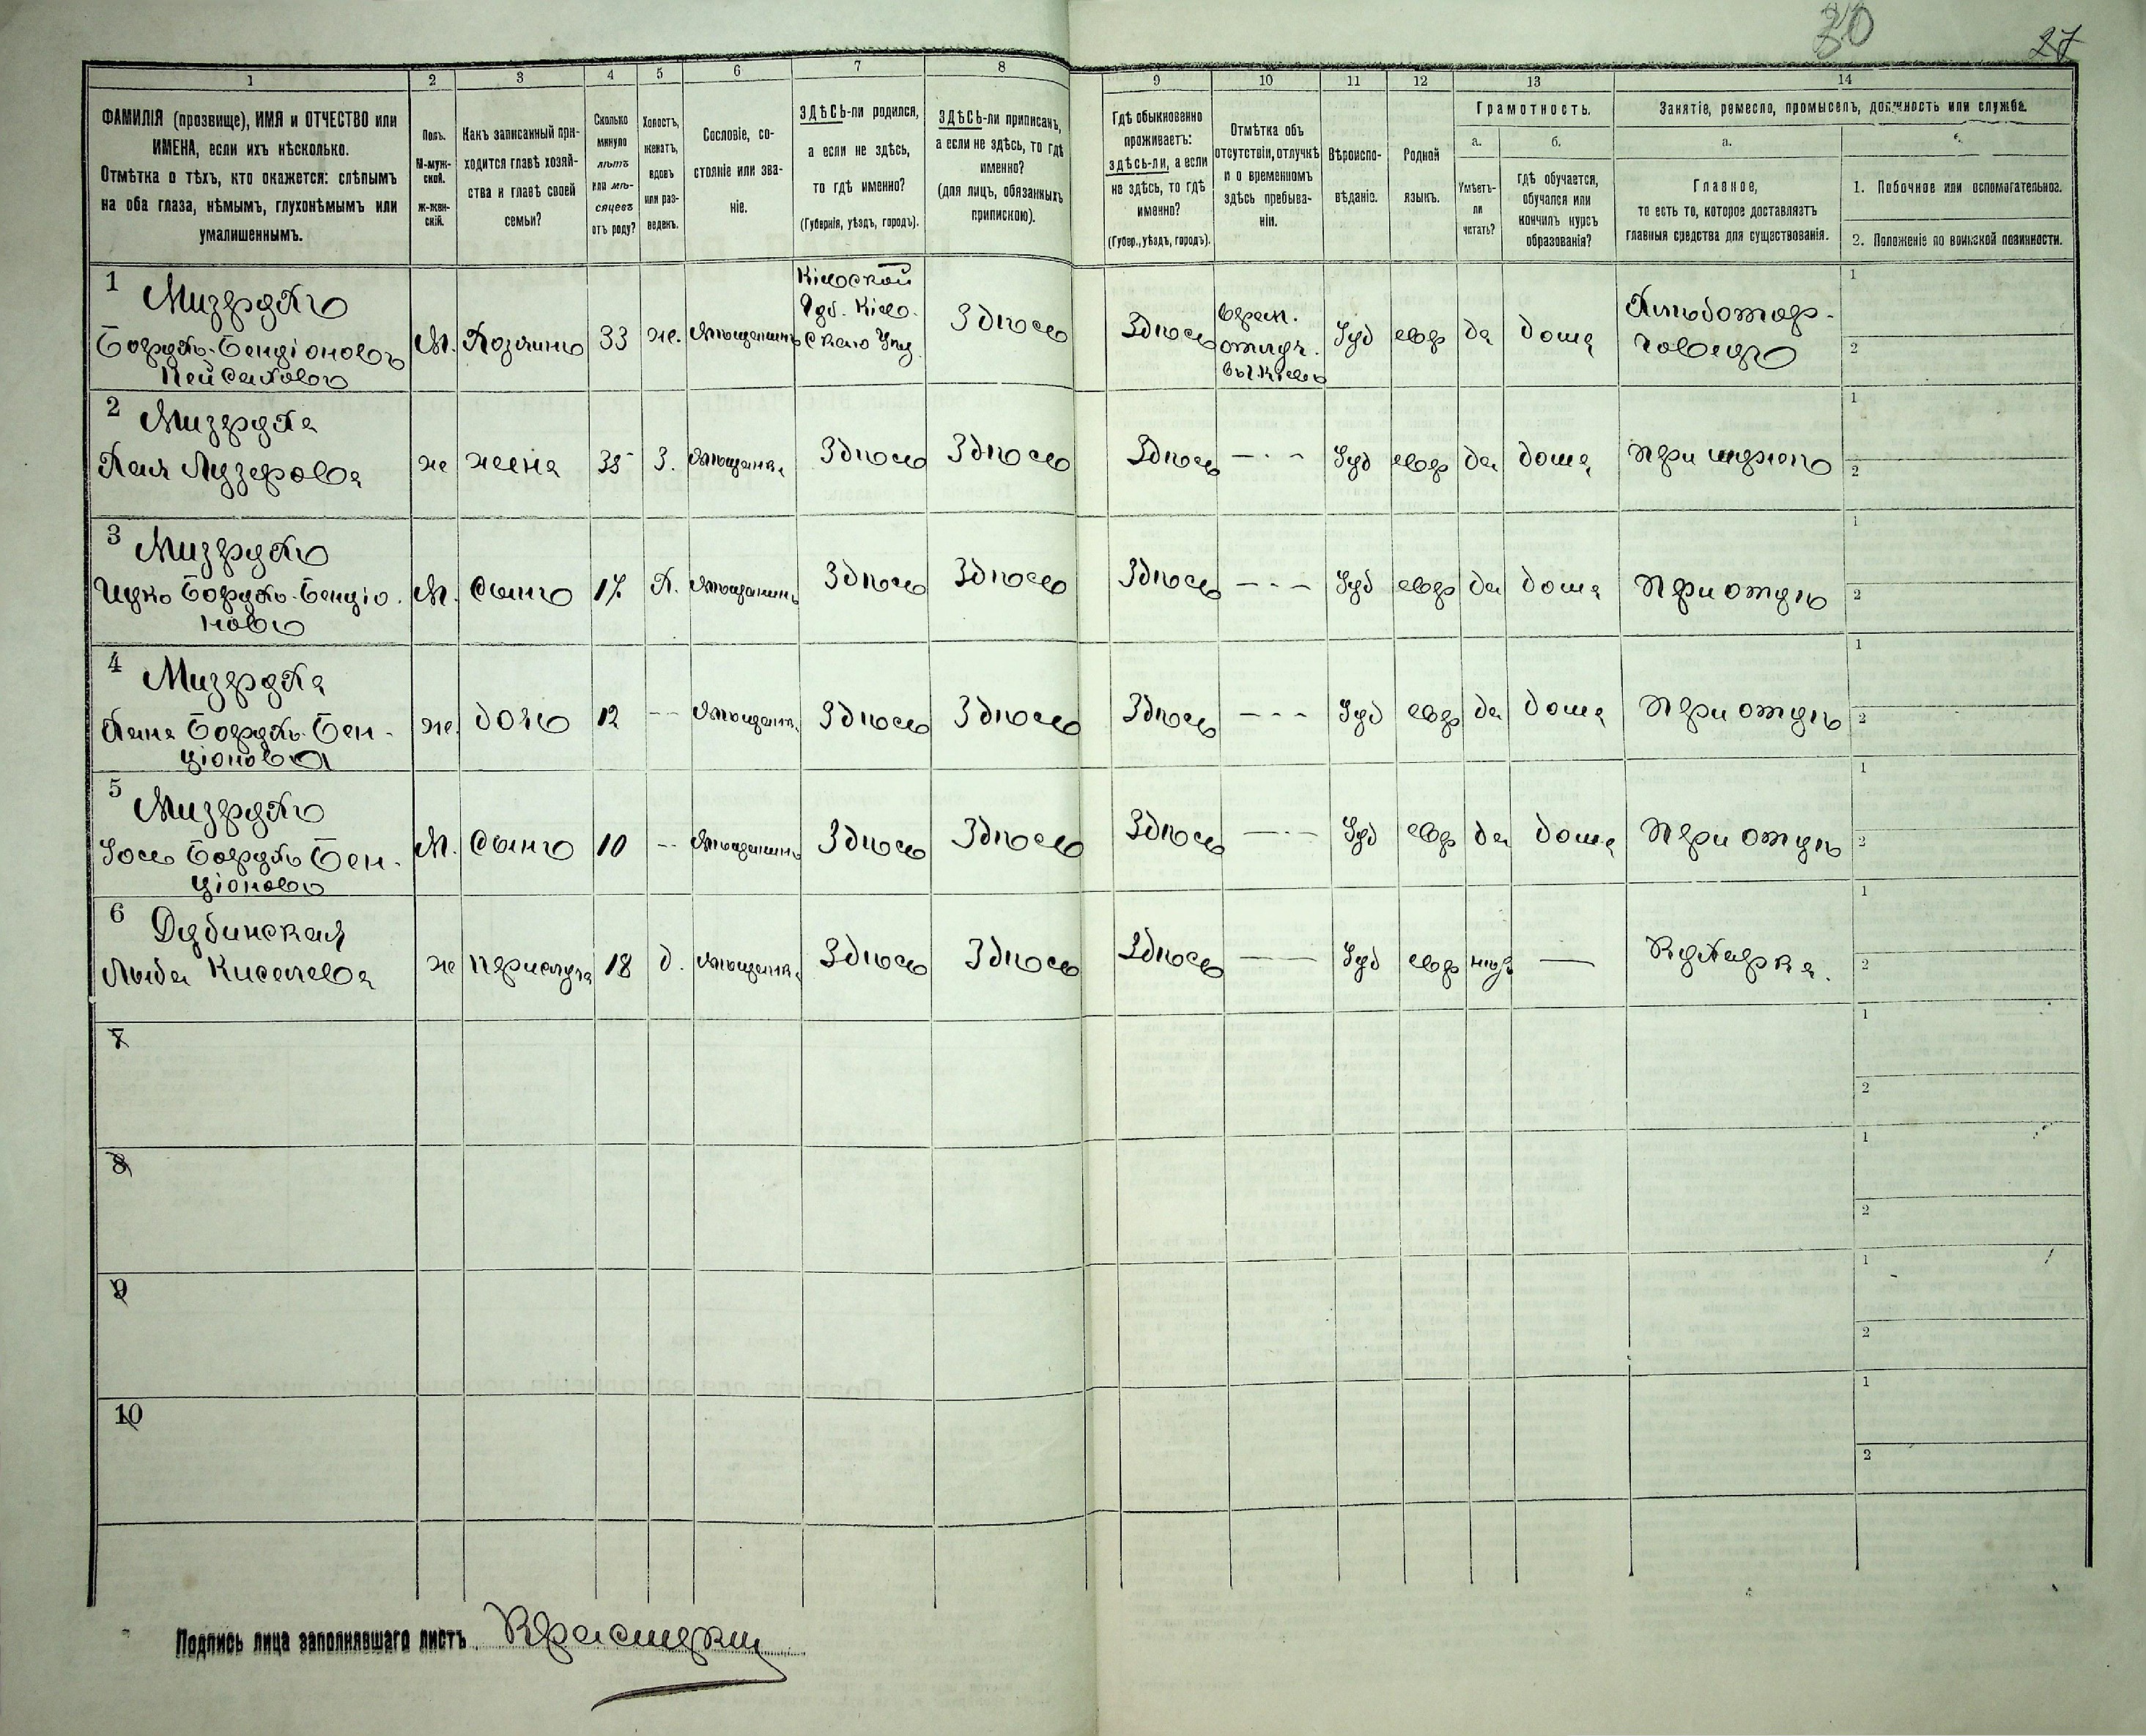 30
27
1
2
3
4
5
6
7
8
9
10
11
12
13
14
ФАМИЛІЯ (прозвище), ИМЯ и ОТЧЕСТВО или
ИМЕНА, если ихъ нѣсколько.
Отмѣтка о тѣхъ, кто окажется: слѣпымъ
на оба глаза, нѣмымъ, глухонѣмымъ или
умалишеннымъ.
Полъ.
М-муж-
ской.
ж-жен-
скій.
Какъ записанный при-
ходится главѣ хозяй-
ства и главѣ своей
семьи?
Сколько
минуло
лѣтъ
или мѣ-
сяцевъ
отъ роду?
Холостъ,
женатъ,
вдовъ
или раз-
веденъ.
Сословіе, со-
стояніе или зва-
ніе.
ЗДѢСЬ-ли родился,
а если не здѣсь,
то гдѣ именно?
(Губернія, уѣздъ, городъ).
ЗДѢСЬ-ли приписанъ,
а если не здѣсь, то гдѣ
именно?
(для лицъ, обязанныхъ
припискою).
Гдѣ обыкновенно
проживаетъ:
здѣсь-ли, а если
не здѣсь, то гдѣ
именно?
(Губер., уѣздъ, городъ).
Отмѣтка объ
отсутствіи, отлучкѣ
и о временномъ
здѣсь пребыва-
ніи.
Вѣроиспо-
вѣданіе.
Родной
языкъ.
Грамотность.
а.
Умѣетъ-
ли
читать?
б.
гдѣ обучается,
обучался или
кончилъ курсъ
образованія?
Занятіе, ремесло, промыселъ, должность или служба.
а.
Главное,
то есть то, которое доставляетъ
главныя средства для существованія.
1. Побочное или вспомогательное.
2. Положеніе по воинской повинности.
1 Мизрухъ
Борухъ-Бенціоновъ
Пейсаховъ
М. Хозяинъ 33 же. Мѣщанинъ
Кіевской
Губ. Кіев-
скаго Уѣз.
Здѣсь Здѣсь
врем.
отлуч.
въ г. Кіевъ
Іуд евр да дома
Хлѣботор-
говецъ
1
2
2 Мизруха
Хая Лузерова
же жена 35 З. Мѣщанка Здѣсь Здѣсь Здѣсь — · — Іуд евр да дома при мужѣ
1
2
3 Мизрухъ
Ицко Борухъ-Бенціо-
новъ
М. сынъ 17 Х. Мѣщанинъ Здѣсь Здѣсь Здѣсь — - - Іуд евр да дома При отцѣ
1
2
4 Мизруха
Хана Борухъ-Бен-
ціонова
же. дочь 12 -- Мѣщанка Здѣсь Здѣсь Здѣсь — - - Іуд евр да дома При отцѣ
1
2
5 Мизрухъ
Іось Борухъ Бен-
ціоновъ
М. сынъ 10 -- Мѣщанинъ Здѣсь Здѣсь Здѣсь — · — Іуд евр да дома При отцѣ
1
2
6 Дубинская
Лыба Киселева
же прислуга 18 д. Мѣщанка Здѣсь Здѣсь Здѣсь — — Іуд евр нѣтъ — Кухарка.
1
2
7
1
2
8
1
2
9
1
2
10
1
2
Подпись лица заполнявшаго листъ